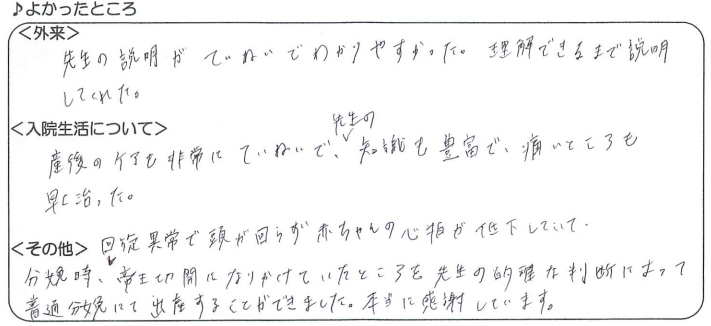 ♪よかったところ
<外来>
先生の説明がていねいでわかりやすかった。理解できるまで説明
してくれた。
<入院生活について>
産後のケアも非常にていねいで、先生の知識も豊富で、痛いところも
早く治った。
<その他> 回旋異常で頭が回らず赤ちゃんの心拍が低下していて、
分娩時、帝王切開になりかけていたところを先生の的確な判断によって
普通分娩にて出産することができました。本当に感謝しています。